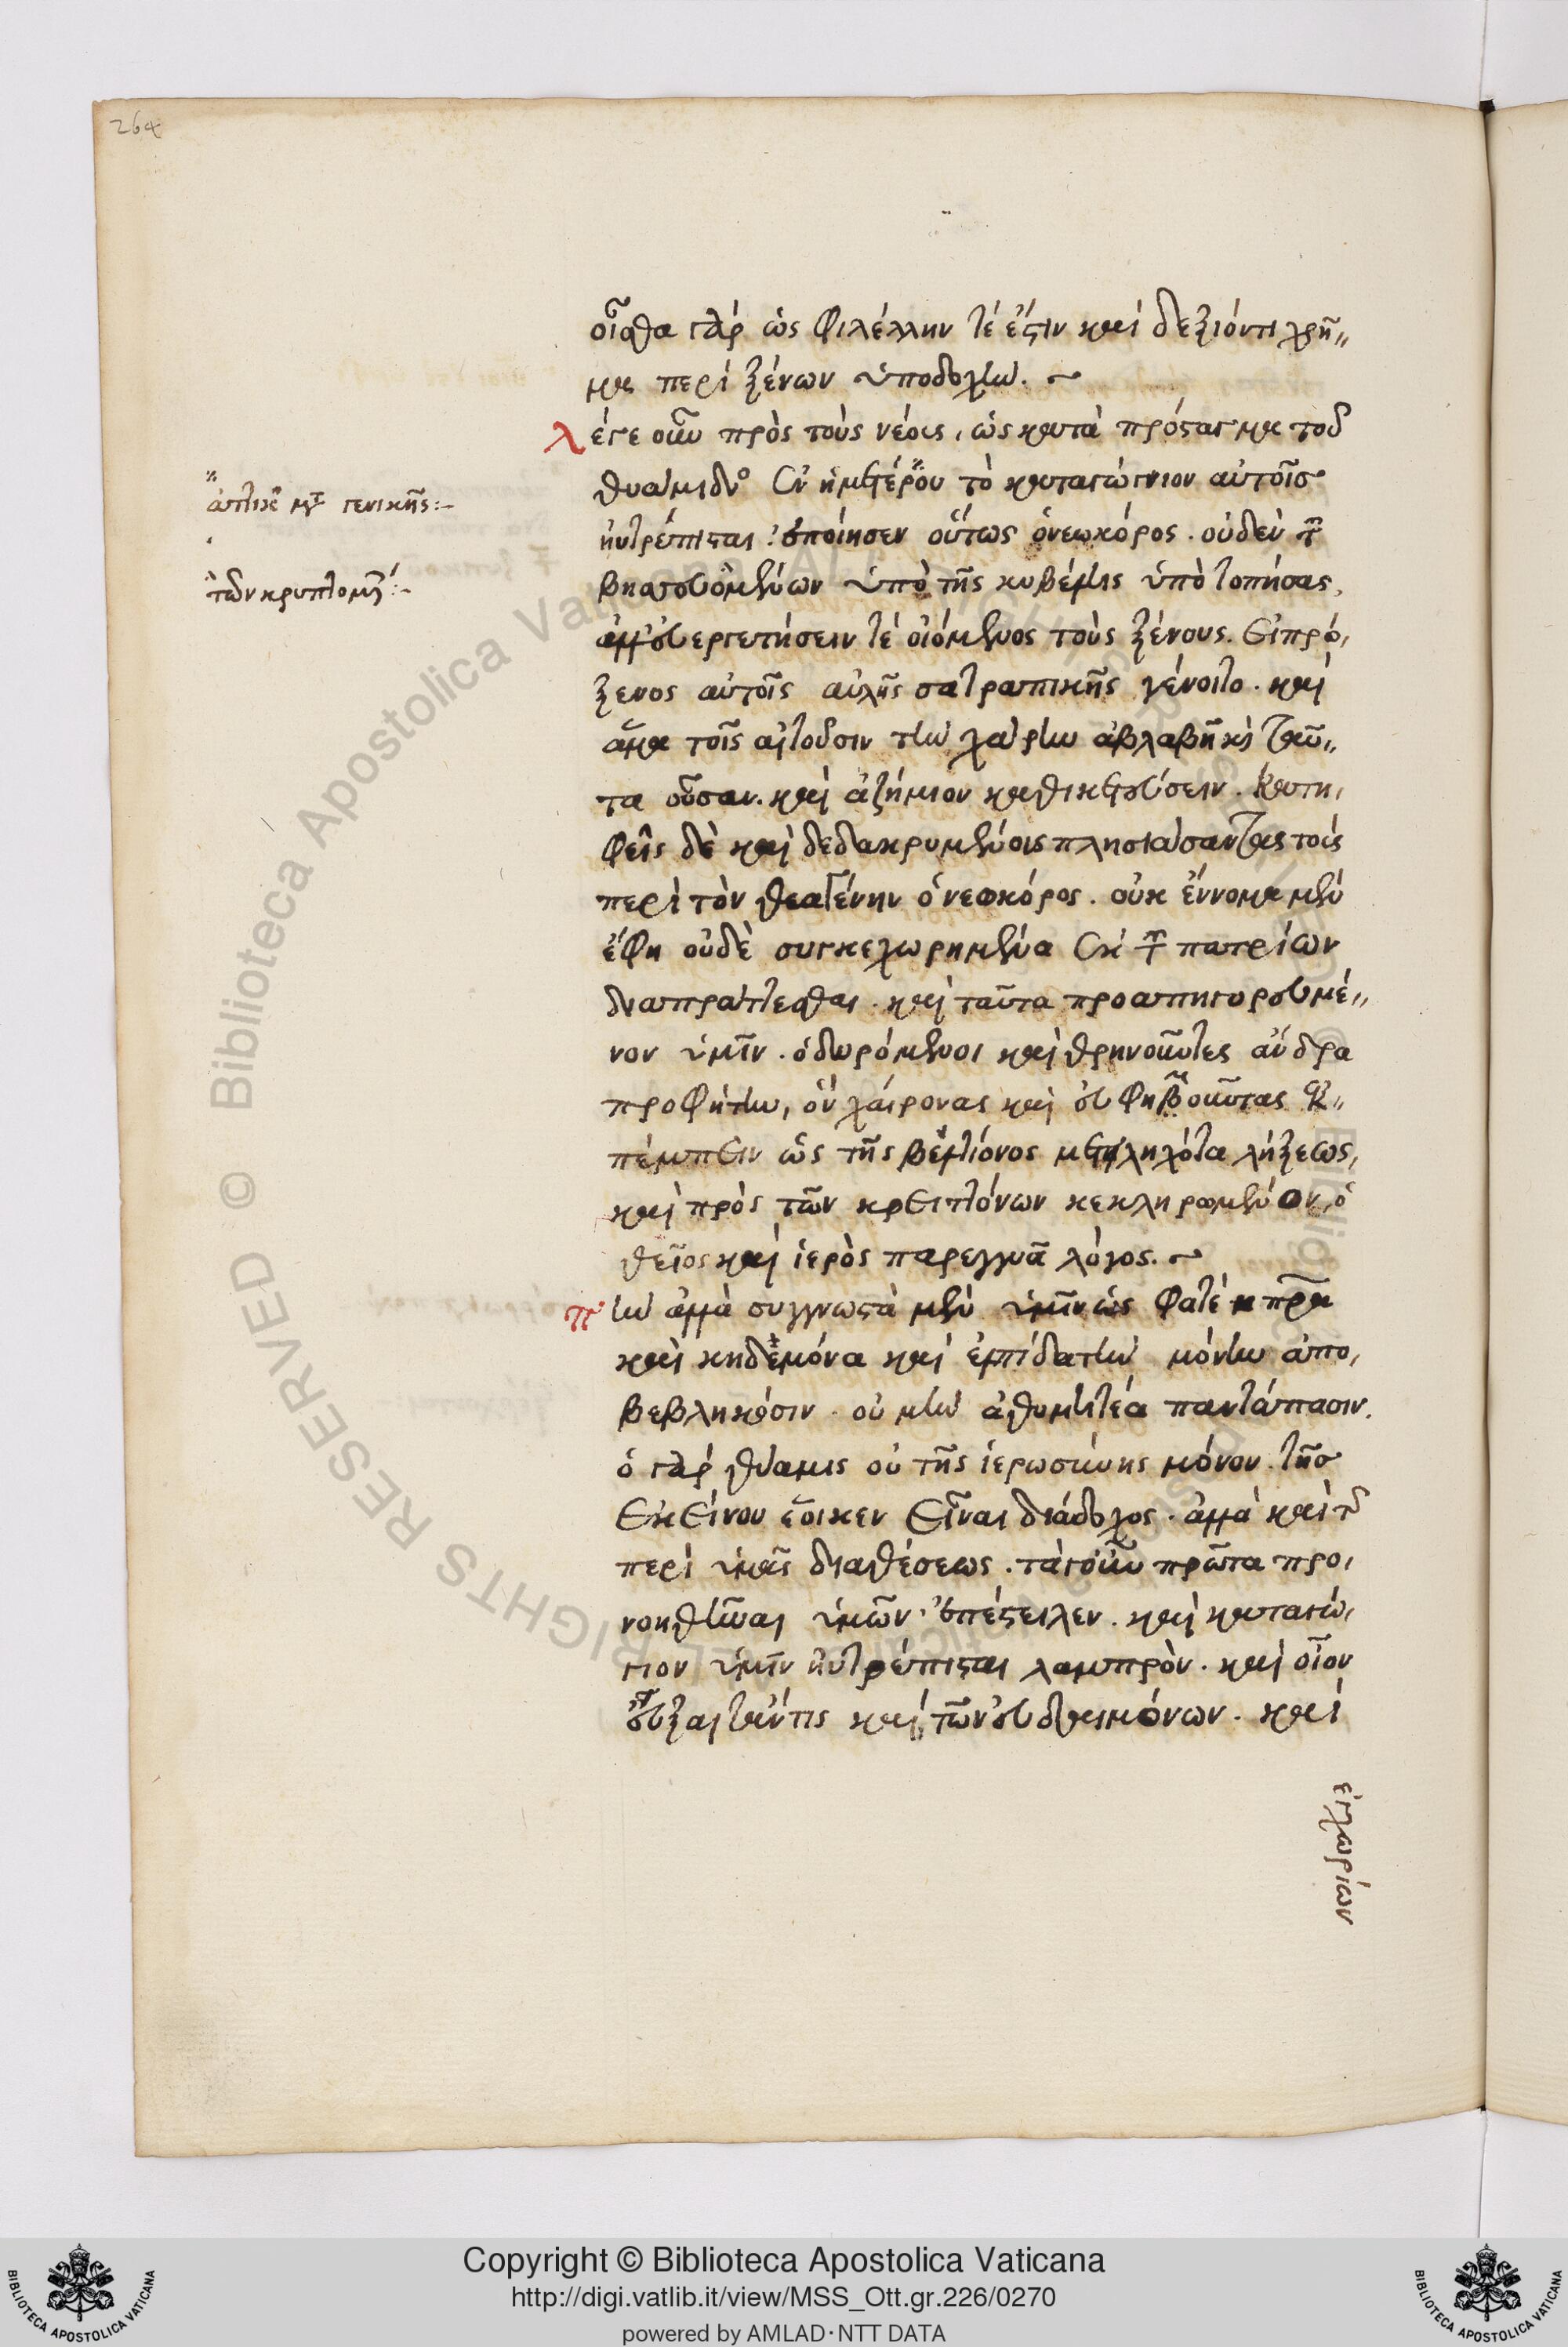 264
οἶσθα γὰρ ὡς φιλέλλην τέ ἐστιν καὶ δεξιόν τι χρῆ„
μα περὶ ξένων ὑποδοχήν. ~
λέγε οὖν πρὸς τοὺς νέους, ὡς κατὰ πρόσταγμα τοῦ
θυάμιδος ἐν ἡμετέρου τὸ καταγώγιον αὐτοῖς
ηὐτρέπισται· ἐποίησεν οὕτως ὁ νεωκόρος. οὐδὲν τῶν
βησσυομένων ὑπὸ τῆς κυβέλης ὑπὸ τοπήσας,
ἀλλ' εὐεργετήσειν τὲ οἰόμενος τοὺς ξένους. εἰ πρό,
ξενος αὐτοῖς αὐλῆς σατραπικῆς γένοιτο. καὶ
ἅμα τοῖς αἰτοῦσιν τὴν χάριν ἀβλαβῆ καὶ ταῦ„
τα οὖσαν. καὶ ἀζήμιον καθικετεύσειν. κατη,
φεῖς δὲ καὶ δεδακρυμένους πλησιάσαντας τοὺς
περὶ τὸν θεαγένην ὁ νεωκόρος. οὐκ ἔννομα μὲν
ἔφη οὐδὲ συγκεχωρημένα ἐκ τῶν πατρίων
διαπράττεσθαι. καὶ ταῦτα προαπηγορευμέ„
νον ὑμῖν. ὀδυρόμενοι καὶ θρηνοῦντες ἄνδρα
προφήτην, ὃν χαίροντας καὶ εὐφημοῦντας ἐκ„
πέμπειν ὡς τῆς βελτίονος μετειληχότα λήξεως,
καὶ πρὸς τῶν κρειττόνων κεκληρωμένον, ὁ
θεῖος καὶ ἱερὸς παρεγγυᾶ λόγος. ~
πλὴν ἀλλὰ συγγνωστὰ μὲν ὑμῖν ὡς φατὲ πρα
καὶ κηδεμόνα καὶ ἐλπίδα τὴν μόνην ἀπο,
βεβληκόσιν. οὐ μὴν ἀθυμητέα παντάπασιν.
ὁ γὰρ θύαμις οὐ τῆς ἱερωσύνης μόνον. τῆς
ἐκείνου ἔοικεν εἶναι διάδοχος. ἀλλὰ καὶ τῆς
περὶ ὑμᾶς διαθέσεως. τὰ γοῦν πρῶτα προ,
νοηθῆναι ὑμῶν ἐπέστειλεν. καὶ καταγώ,
γιον ὑμῖν ηὐτρέπισται λαμπρὸν. καὶ οἷον
εὔξαιτ' ἄν τις καὶ τῶν εὐδαιμόνων. καὶ
ἐγχωρίων
ἀττικὸν μετὰ γενικῆς:–
τῶν κρυπτομένων:–
Copyright © Biblioteca Apostolica Vaticana
http://digi.vatlib.it/view/MSS_Ott.gr.226/0270
powered by AMLAD·NTT DATA